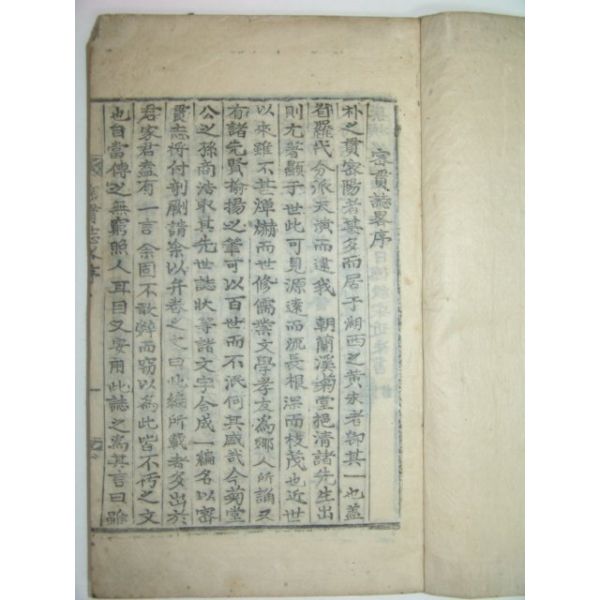 密貫誌畧序
朴之貫密陽者甚多而居于湖西之黃永者卽其一也盖
省羅代分派天演而逮我　朝蘭溪菊堂挹清諸先生出
則尤著顯于世此可見源遠而流長根深而枝茂也近世
以來雖不甚燀爀而世修儒業文學孝友爲鄉人所誦又
有諸先賢揄揚之筆可以百世而不泯何其盛哉今菊堂
公之孫商浩取其先世誌狀等諸文字合成一編名以密
貫誌將付剞劂請余以弁卷之文曰此編所載者多出於
君家君盍有一言余固不敢辭而窃以爲此皆不朽之文
也自當傳之無窮照人耳目又安用此誌之爲其言曰雖
密貫誌
一